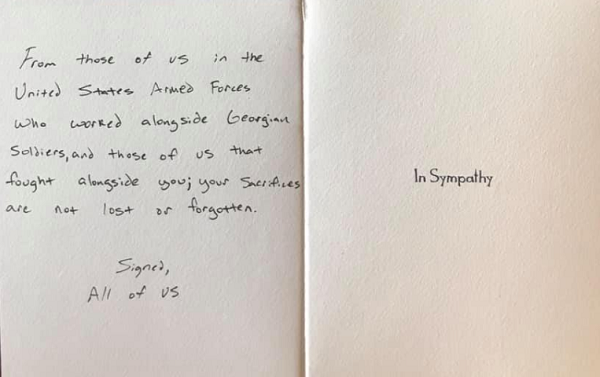 From those of us in the
United States Armed Forces
Who worked alongside Georgian
Soldiers, and those of us that
fought alongside you; your Sacrifices
are not lost or forgotten.
Signed,
All of us
In Sympathy